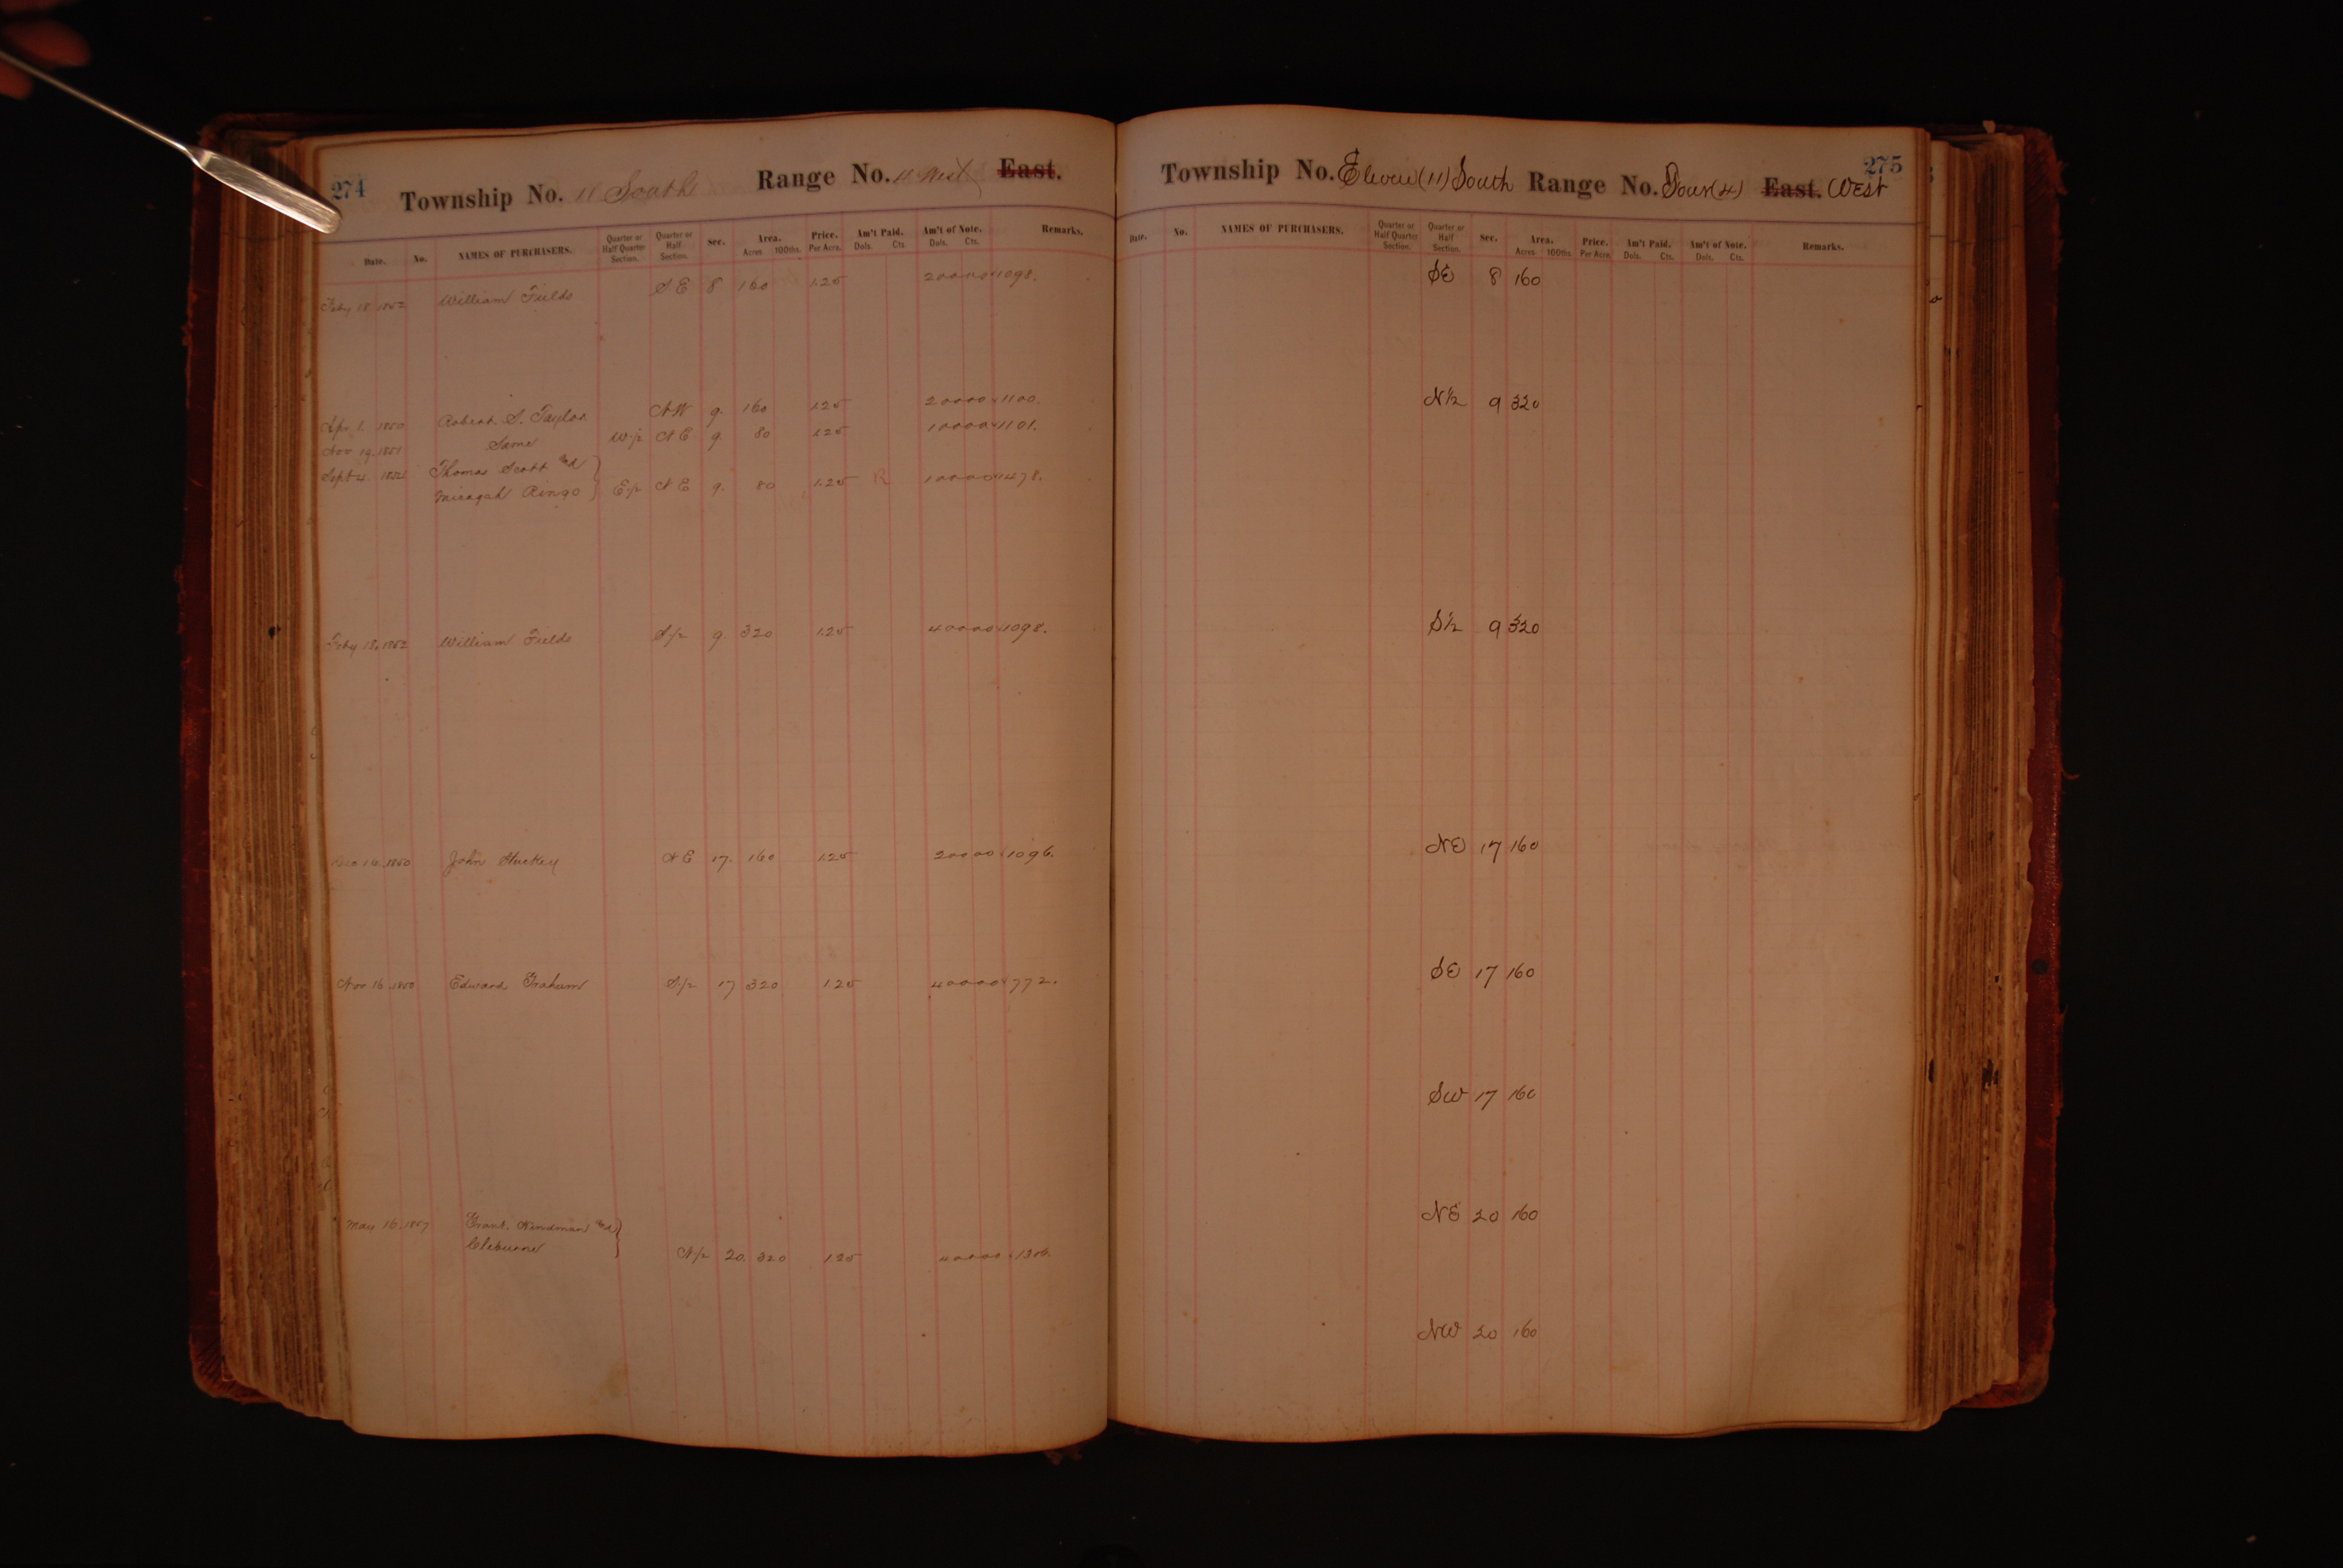 274
Township No. 11 South Range No. 4 West East.
Date. No. NAMES OF PURCHASERS. Quarter or Half Quarter Section. Quarter or Half Section. Sec. Area. Acres 100ths. Price. Per Acre. Am't Paid. Dols. Cts. Am't of Note. Dols. Cts. Remarks.
Feby 18 1852 William Fields S E 8 160 1.25 200 00 1098.
Apr 1. 1850 Robert S. Taylor N W 9. 160 1.25 200 00 1100.
Nov 19. 1851 Same W ½ N E 9. 80 1.25 100 00 1101.
Sept 4. Thomas Scott and
Ringo E ½ N E 9. 80 1.25 R 100 00 1478.
Feby 18. 1852 William Fields S ½ 9. 320 1.25 400 00 1098.
Dec 16. 1850 John Stuckey N E 17. 160 1.25 200 00 1096.
Nov 16. 1850 Edward Graham S ½ 17 320 1.25 400 00 772.
May 16. 1857 Grant. Hindman and
Cleburne N ½ 20. 320 1.25 400 00
275
Township No. Eleven (11) South Range No. Four (4) East. West
Date. No. NAMES OF PURCHASERS. Quarter or Half Quarter Section. Quarter or Half Section. Sec. Area. Acres 100ths. Price. Per Acre. Am't Paid. Dols. Cts. Am't of Note. Dols. Cts. Remarks.
SE 8 160
N½ 9 320
S½ 9 320
NE 17 160
SE 17 160
SW 17 160
NE 20 160
NW 20 160